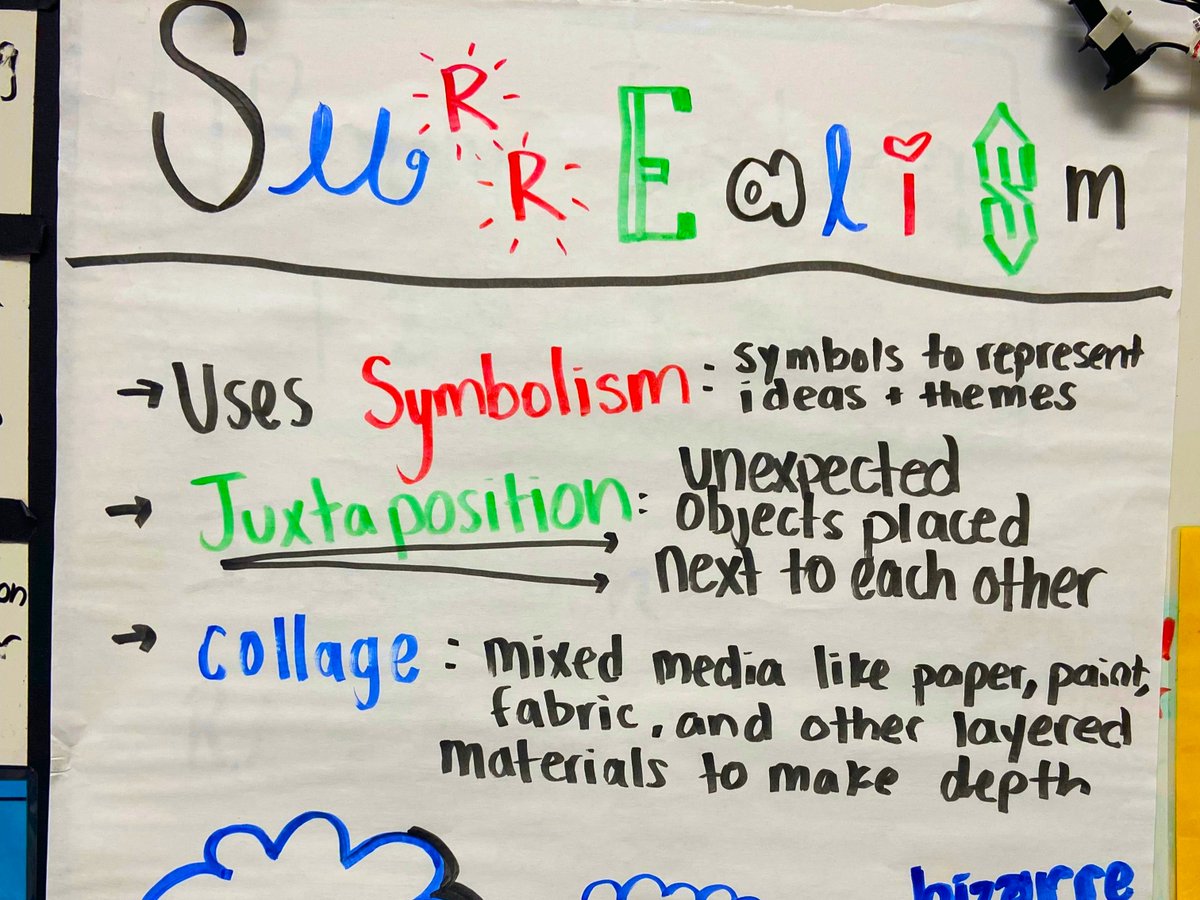 SurREalism
→ Uses Symbolism: symbols to represent
ideas + themes
→ Juxtaposition: unexpected
objects placed
next to each other
→ collage: mixed media like paper, paint,
fabric, and other layered
materials to make depth
bizarre